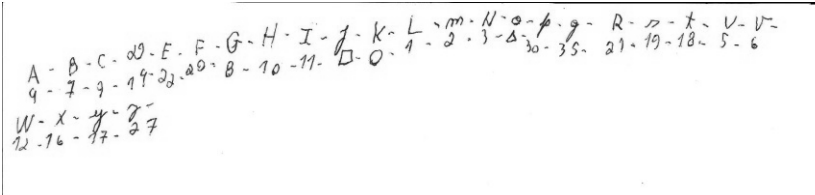 A - B - C - D - E - F - G - H - I - J - K - L - m - N - o - p - q - R - s - t - U - V -
9 - 7 - 9 - 14 - 22 - 20 - 8 - 10 - 11 - □ - O - 1 - 2 - 3 - Δ - 30 - 35 - 21 - 19 - 18 - 5 - 6
W - X - y - z -
12 - 16 - 17 - 27